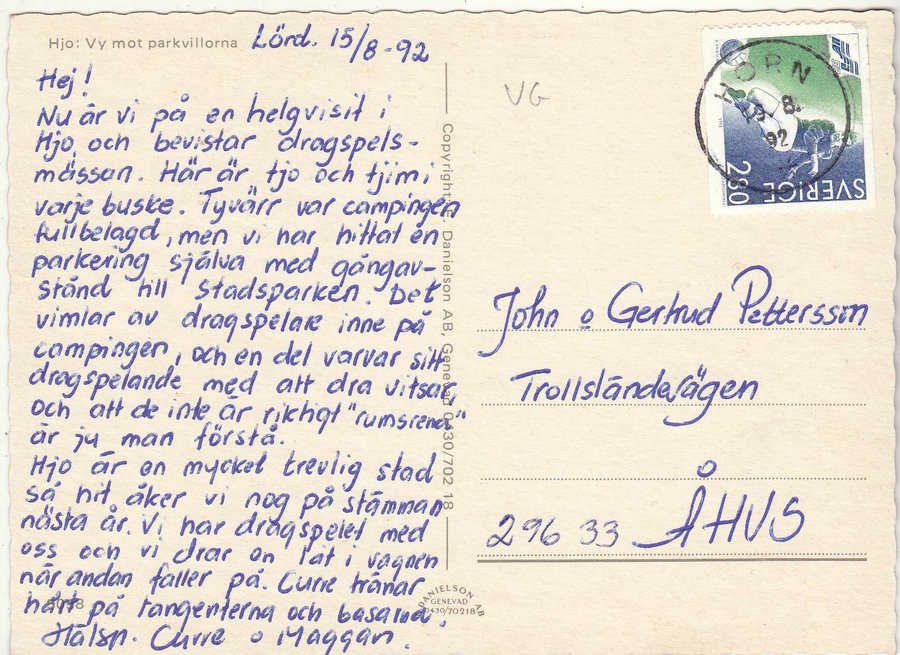 Hjo: Vy mot parkvillorna
Lörd. 15/8-92
Hej!
Nu är vi på en helgvisit i
Hjo, och bevistar dragspels-
mässan. Här är tjo och tjim i
varje buske. Tyvärr var campingen
fullbelagd, men vi har hittat en
parkering själva med gångav-
stånd till stadsparken. Det
vimlar av dragspelare inne på
campingen, och en del varvar sitt
dragspelande med att dra vitsar,
och att de inte är riktigt "rumsrena"
är ju man förstå.
Hjo är en mycket trevlig stad
så hit åker vi nog på stämman
nästa år. Vi har dragspelet med
oss och vi drar en låt i vagnen
när andan faller på. Curre tränar
hårt på tangenterna och basarna.
Hälsn. Curre o Maggan.
5098
Copyright: Danielson AB, Genevad 0430/702 18
DANIELSON AB
GENEVAD
0430/70218
VG
HORN
8.
92
SVERIGE
280
John o Gertrud Pettersson
Trollsländevägen
296 33 ÅHUS